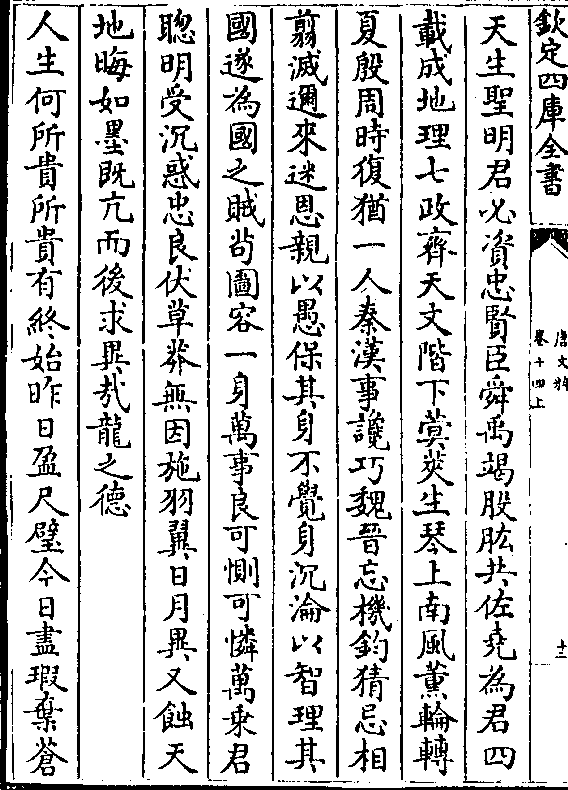 欽定四庫全書
唐文粹
卷十四上
十二
天生聖明君必資忠賢臣舜禹竭股肱共佐堯為君四
載成地理七政齊天文階下蓂莢生琴上南風薰輪轉
夏殷周時復猶一人秦漢事讒巧魏晉忘機鈞猜忌相
翦滅邇來迷恩親以愚保其身不覺身沉淪以智理其
國遂為國之賊茍圖容一身萬事良可惻可憐萬乘君
聰明受沉惑忠良伏草莽無因施羽翼日月異又蝕天
地晦如墨既亢而後求異哉龍之德
人生何所貴所貴有終始昨日盈尺璧今日盡瑕棄蒼